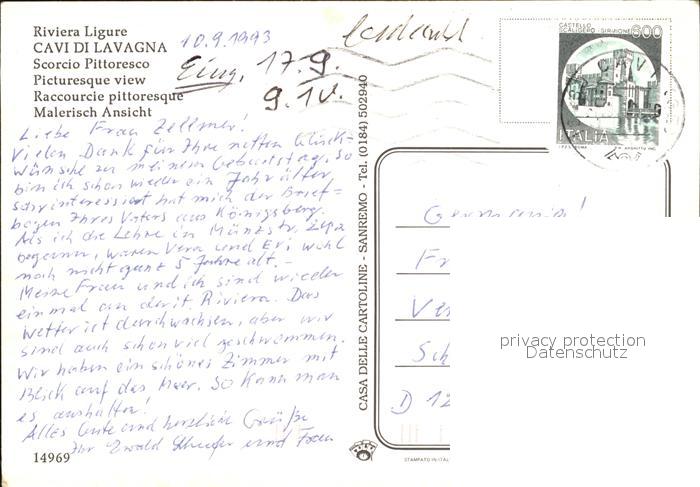 Riviera Ligure
CAVI DI LAVAGNA
Scorcio Pittoresco
Picturesque view
Raccourcie pittoresque
Malerisch Ansicht
10.9.1993
Eing. 17.9.
9.10.
Liebe Frau Zellmer!
Vielen Dank für Ihre netten Glück-
wünsche zu meinem Geburtstag, so
bin ich schon wieder ein Jahr älter,
sehr interessiert hat mich der Brief-
bogen Ihres Vaters aus Königsberg.
Als ich die Lehre in Münzstr.
begann, waren Vera und Evi wohl
noch nicht ganz 5 Jahre alt. -
Meine Frau und ich sind wieder
einmal an der it. Riviera. Das
Wetter ist durchwachsen, aber wir
sind auch schon viel geschwommen.
Wir haben ein schönes Zimmer mit
Blick auf das Meer. So kann man
es aushalten!
Alles Gute und herzliche Grüße
Ihr Ewald und Frau
14969
CASA DELLE CARTOLINE - SANREMO - Tel. (0184) 502940
CASTELLO
SCALIGERO - SIRMIONE
600
ITALIA
CAVI
Germania!
Fr
Ver
Sch
D 12
privacy protection
Datenschutz
STAMPATO IN ITAL